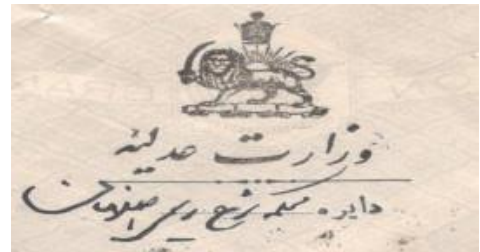 وزارت عدلیه
دایره محکمه شرع اصفهان